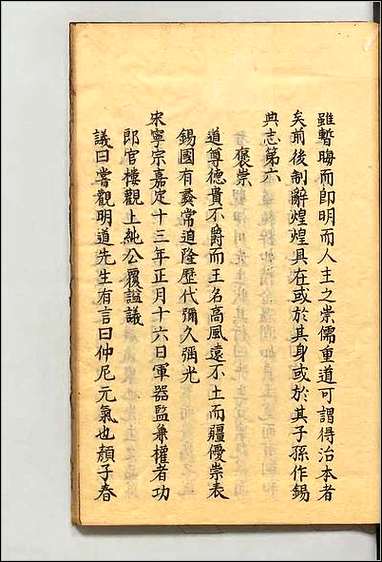 雖暫晦而即明而人主之崇儒重道可謂得治本者
矣前後制辭煌煌具在或於其身或於其子孫作錫
典志第六
褒崇
道尊德貴不爵而王名高風遠不土而疆優崇表
錫國有彞常追隆歷代彌久彌光
宋寧宗嘉定十三年正月十六日軍器監兼權考功
郎官樓觀上純公覆諡議
議曰嘗觀明道先生有言曰仲尼元氣也顏子春